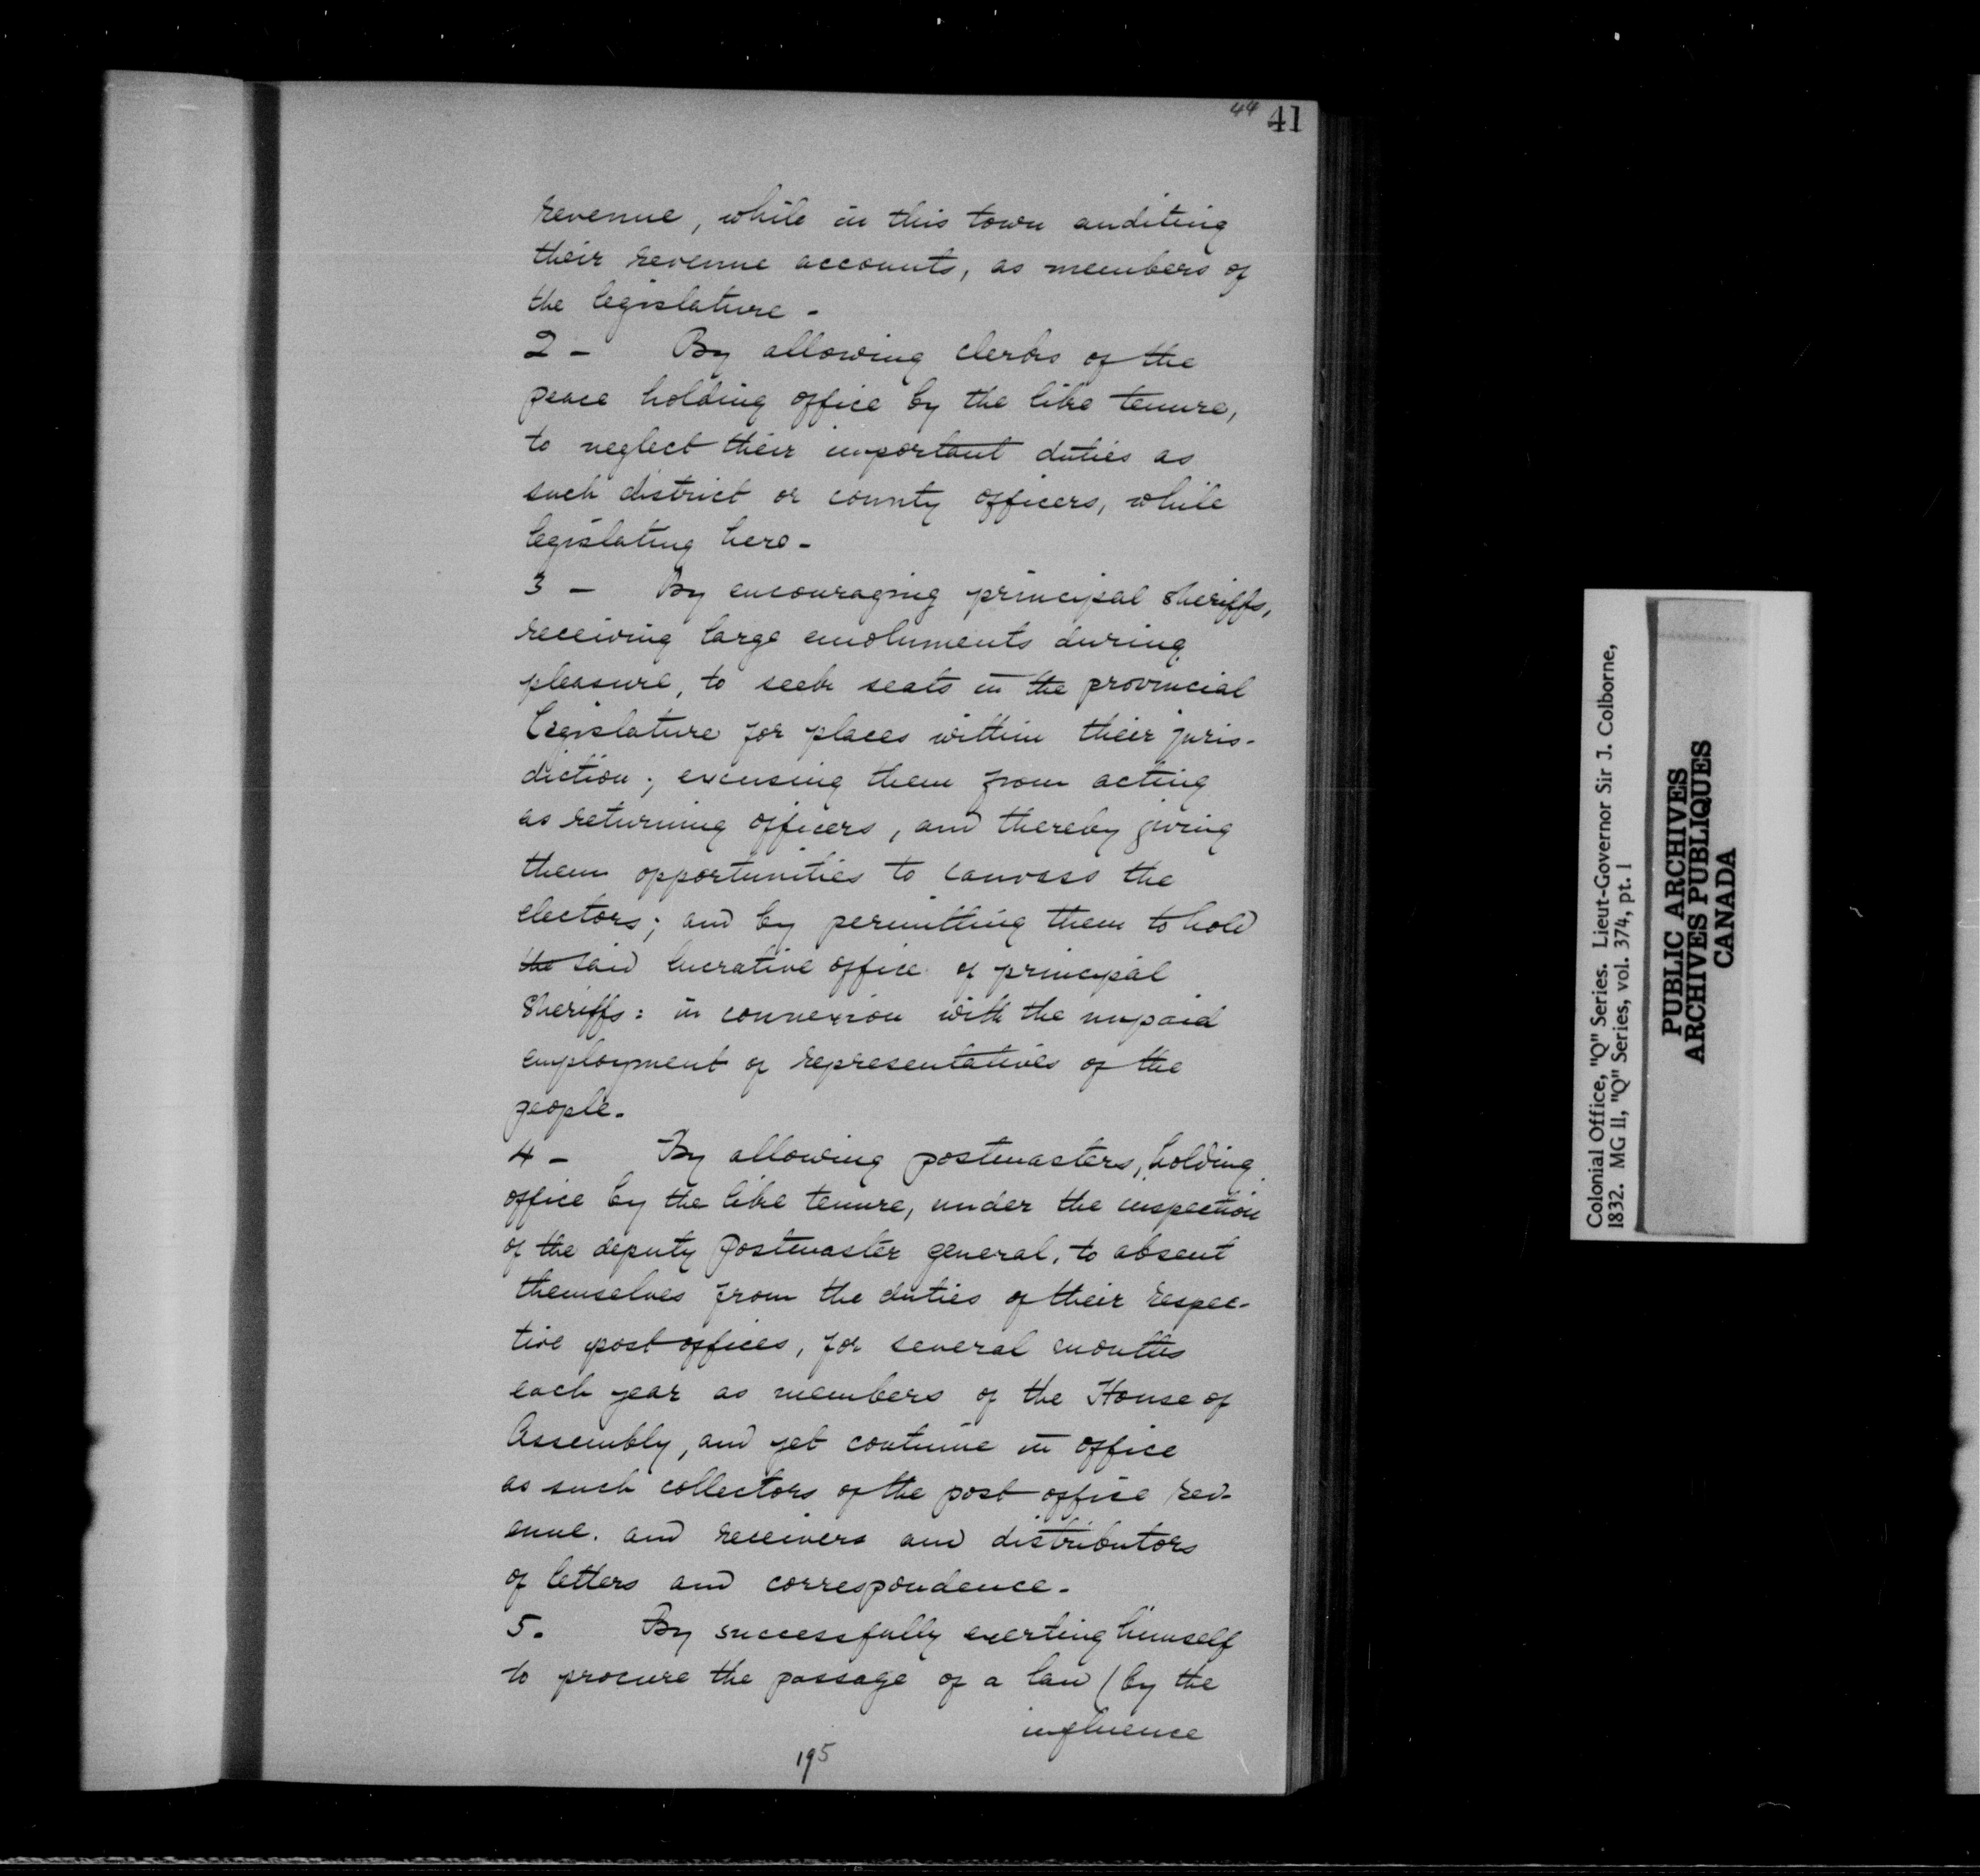 44 41
revenue, while in this town auditing
their revenue accounts, as members of
the legislature -
2 - By allowing clerks of the
peace holding office by the like tenure,
to neglect their important duties as
such district or county officers, while
legislating here -
3 - By encouraging principal sheriffs,
receiving large emoluments during
pleasure, to seek seats in the provincial
Legislature for places within their juris-
diction; excusing them from acting
as returning officers, and thereby giving
them opportunities to canvass the
electors; and by permitting them to hold
the said lucrative office of principal
Sheriffs: in connexion with the unpaid
employment of representatives of the
people.
4 - By allowing postmasters, holding
office by the like tenure, under the inspection
of the deputy Postmaster general, to absent
themselves from the duties of their respec-
tive post offices, for several months
each year as members of the House of
Assembly, and yet continue in office
as such collectors of the post office rev-
enue. and receivers and distributors
of letters and correspondence.
5. By successfully exerting himself
to procure the passage of a law (by the
influence
195
Colonial Office, "Q" Series. Lieut-Governor Sir J. Colborne,
1832. MG 11, "Q" Series, vol. 374, pt. 1
PUBLIC ARCHIVES
ARCHIVES PUBLIQUES
CANADA